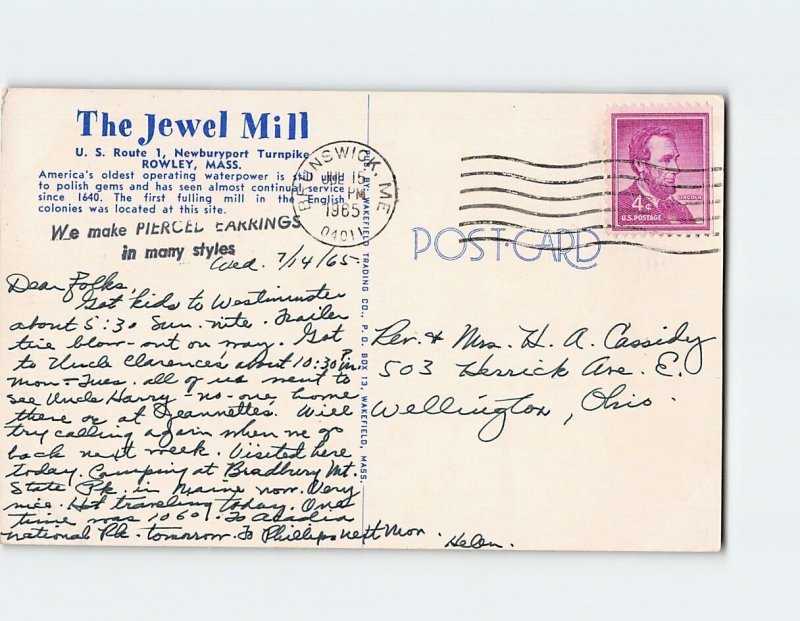 The Jewel Mill
U. S. Route 1, Newburyport Turnpike
ROWLEY, MASS.
America's oldest operating waterpower is still used
to polish gems and has seen almost continual service
since 1640. The first fulling mill in the English
colonies was located at this site.
We make PIERCED EARRINGS
in many styles
BRUNSWICK, ME
15
PM
1965
04011
4¢
LINCOLN
U.S. POSTAGE
POST CARD
PUB. BY: WAKEFIELD TRADING CO., P. O. BOX 13, WAKEFIELD, MASS.
Wed. 7/14/65
Dear Folks,
Got kids to Westminster
about 5:30 Sun. nite. Trailer
tire blow-out on way. Got
to Uncle Clarence's about 10:30 P.M.
Mon - Tues. all of us went to
see Uncle Harry - no-one home
there or at Jeannette's. Will
try calling again when we go
back next week. Visited here
today. Camping at Bradbury Mt.
State Pk. in Maine now. Very
nice. Hot traveling today. One
time was 106°. To Acadia
National Pk. tomorrow. To Phillips next Mon.
Helen.
Rev. & Mrs. H. A. Cassidy
503 Herrick Ave. E.
Wellington, Ohio.